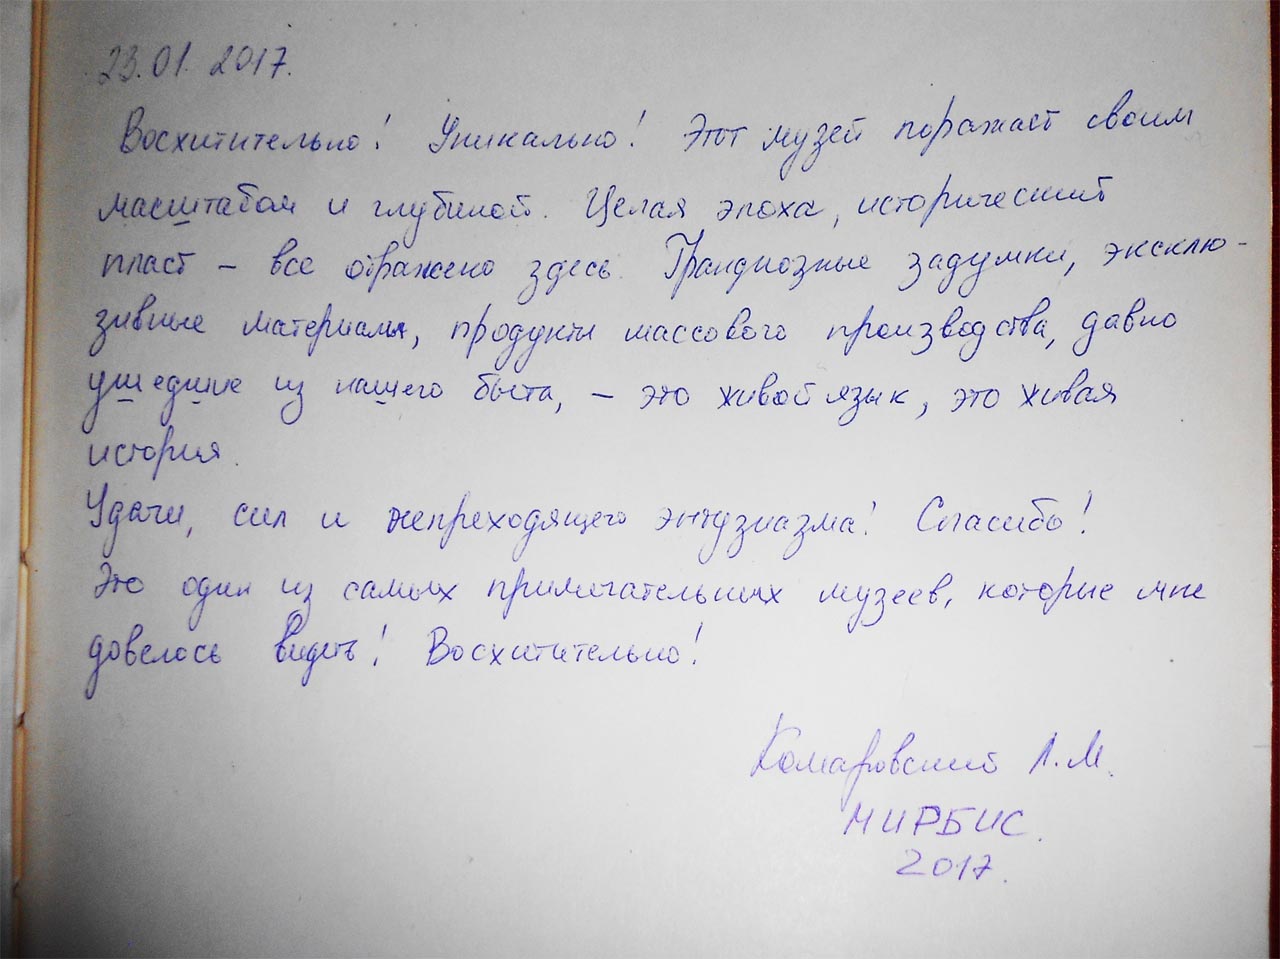 23.01.2017.
Восхитительно! Уникально! Этот музей поражает своим
масштабом и глубиной. Целая эпоха, исторический
пласт – все отражено здесь. Грандиозные задумки, эксклю-
зивные материалы, продукты массового производства, давно
ушедшие из нашего быта, – это живой язык, это живая
история.
Удачи, сил и непреходящего энтузиазма! Спасибо!
Это один из самых примечательных музеев, которые мне
довелось видеть! Восхитительно!
Комаровский Л.М.
МИРБИС.
2017.